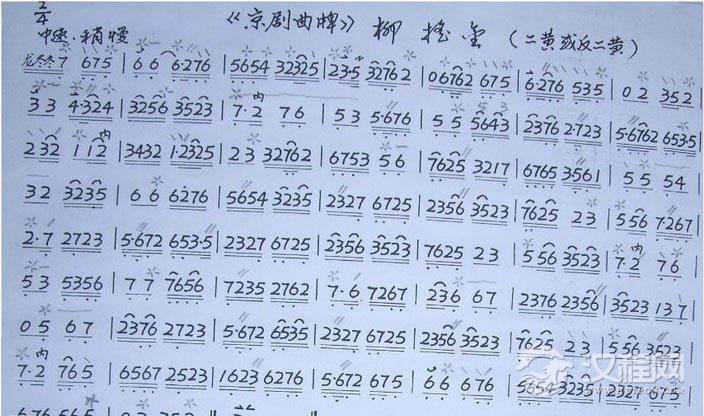 2/4 《京剧曲牌》 柳摇金 (二黄或反二黄)
中速·稍慢
龙冬冬7 675 | 66 6·276 | 5654 32325 | 235 32762 | 06762 675 | 6·276 535 | 02 352 |
33 4·324 | 3256 3523 | 7·2内 76 | 53 5·676 | 55 5643 | 2376 2·723 | 5·6762 653·5 |
232 112内 | 3432 1·2325 | 23 32762 | 6753 56 | 7625 3217 | 6765 3561 | 55 54
32 3235 | 66 6276 | 5654 3235 | 2327 6725 | 2356 3523 | 7625 23 | 556 7·267 |
2·7 2723 | 5·672 653·5 | 2327 6725 | 2356 3523 | 7625 23 | 556 3523 | 72内 76 |
53 5356 | 77 7656 | 7235 2762 | 7·6 7267 | 236 67 | 2376 2356 | 3523 137 |
05 67 | 2376 2723 | 5·672 6535 | 2327 6725 | 2356 3523 | 7625 23 | 556 3523 |
7·2内 765 | 6567 2523 | 1623 6276 | 5·672 675 | 66 676 | 5654 3235 | 2327 675 |
文程网